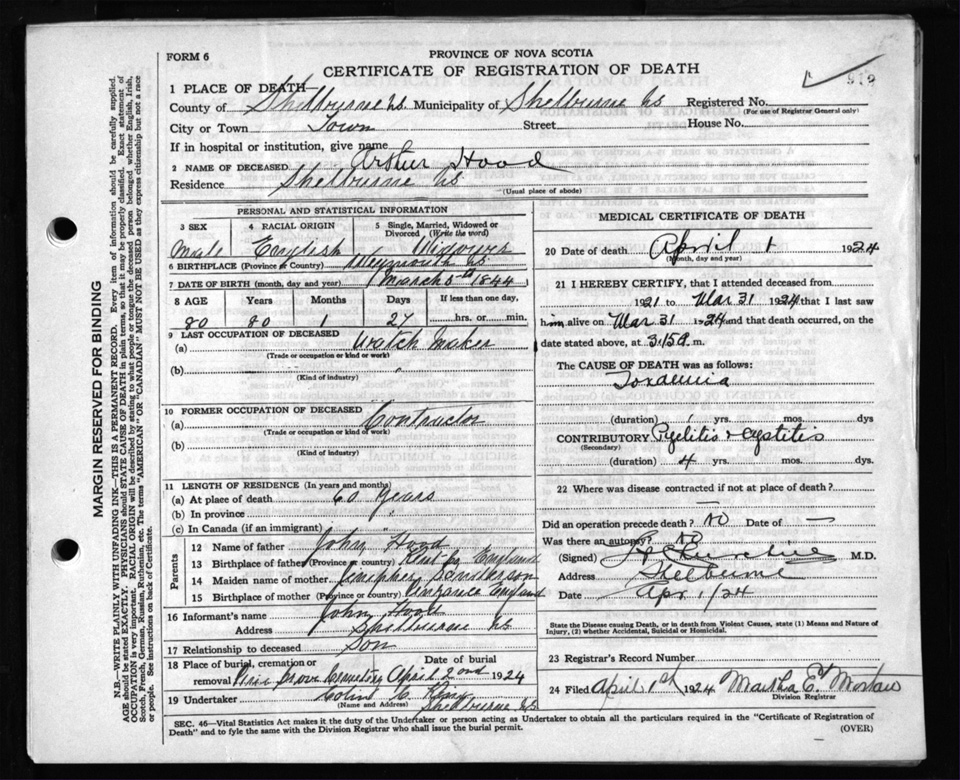 PROVINCE OF NOVA SCOTIA
FORM 6
CERTIFICATE OF REGISTRATION OF DEATH
919
1 PLACE OF DEATH
County of Shelburne NS Municipality of Shelburne NS Registered No.
(For use of Registrar General only)
City or Town Town Street House No.
If in hospital or institution, give name
2 NAME OF DECEASED Arthur Hood
Residence Shelburne NS
(Usual place of abode)
PERSONAL AND STATISTICAL INFORMATION
3 SEX 4 RACIAL ORIGIN 5 Single, Married, Widowed or Divorced (Write the word)
Male English Widower
6 BIRTHPLACE (Province or Country) Weymouth NS
7 DATE OF BIRTH (month, day and year) March 5th 1844
8 AGE Years Months Days If less than one day,
80 80 1 27 hrs. or min.
9 LAST OCCUPATION OF DECEASED
(a) Watch Maker
(Trade or occupation or kind or work)
(b) "
(Kind of industry)
10 FORMER OCCUPATION OF DECEASED
(a) Contractor
(Trade or occupation or kind of work)
(b)
(Kind of industry)
11 LENGTH OF RESIDENCE (In years and months)
(a) At place of death 60 years
(b) In province "
(c) In Canada (if an immigrant)
Parents
12 Name of father John Hood
13 Birthplace of father (Province or Country) England
14 Maiden name of mother
15 Birthplace of mother (Province or country) England
16 Informant's name John Hood
Address Shelburne NS
17 Relationship to deceased Son
18 Place of burial, cremation or removal Pine Grove Cemetery Date of burial April 2nd 1924
19 Undertaker Colin C.
(Name and Address) Shelburne NS
MEDICAL CERTIFICATE OF DEATH
20 Date of death April 1 1924
(Month, day and year)
21 I HEREBY CERTIFY, that I attended deceased from
1921 to Mar 31 1924 that I last saw
him alive on Mar 31 1924 and that death occurred, on the
date stated above, at 3.15 a. m.
The CAUSE OF DEATH was as follows:
Toxaemia
(duration) 1 yrs. mos. dys
CONTRIBUTORY Pyelitis & Cystitis
(Secondary)
(duration) 4 yrs. mos. dys.
22 Where was disease contracted if not at place of death?
Did an operation precede death? No Date of —
Was there an autopsy? No
(Signed) M.D.
Address Shelburne
Date Apr 1/24
State the Disease causing Death, or in death from Violent Causes, state (1) Means and Nature of
Injury, (2) whether Accidental, Suicidal or Homicidal.
23 Registrar's Record Number
24 Filed April 1st 1924 Martha E.
Division Registrar
SEC. 46—Vital Statistics Act makes it the duty of the Undertaker or person acting as Undertaker to obtain all the particulars required in the "Certificate of Registration of
Death" and to fyle the same with the Division Registrar who shall issue the burial permit.
(OVER)
MARGIN RESERVED FOR BINDING
N.B.—WRITE PLAINLY WITH UNFADING INK—THIS IS A PERMANENT RECORD. Every item of information should be carefully supplied.
AGE should be stated EXACTLY. PHYSICIANS should STATE CAUSE OF DEATH in plain terms, so that it may be properly classified. Exact statement of
OCCUPATION is very important. RACIAL ORIGIN will be described by stating to what people or tongue the deceased person belonged whether English, Irish,
Scotch, French, German, Russian, Ruthenian, etc. The terms "AMERICAN" OR "CANADIAN" MUST NOT BE USED as they express citizenship but not a race
or people. See instructions on back of Certificate.